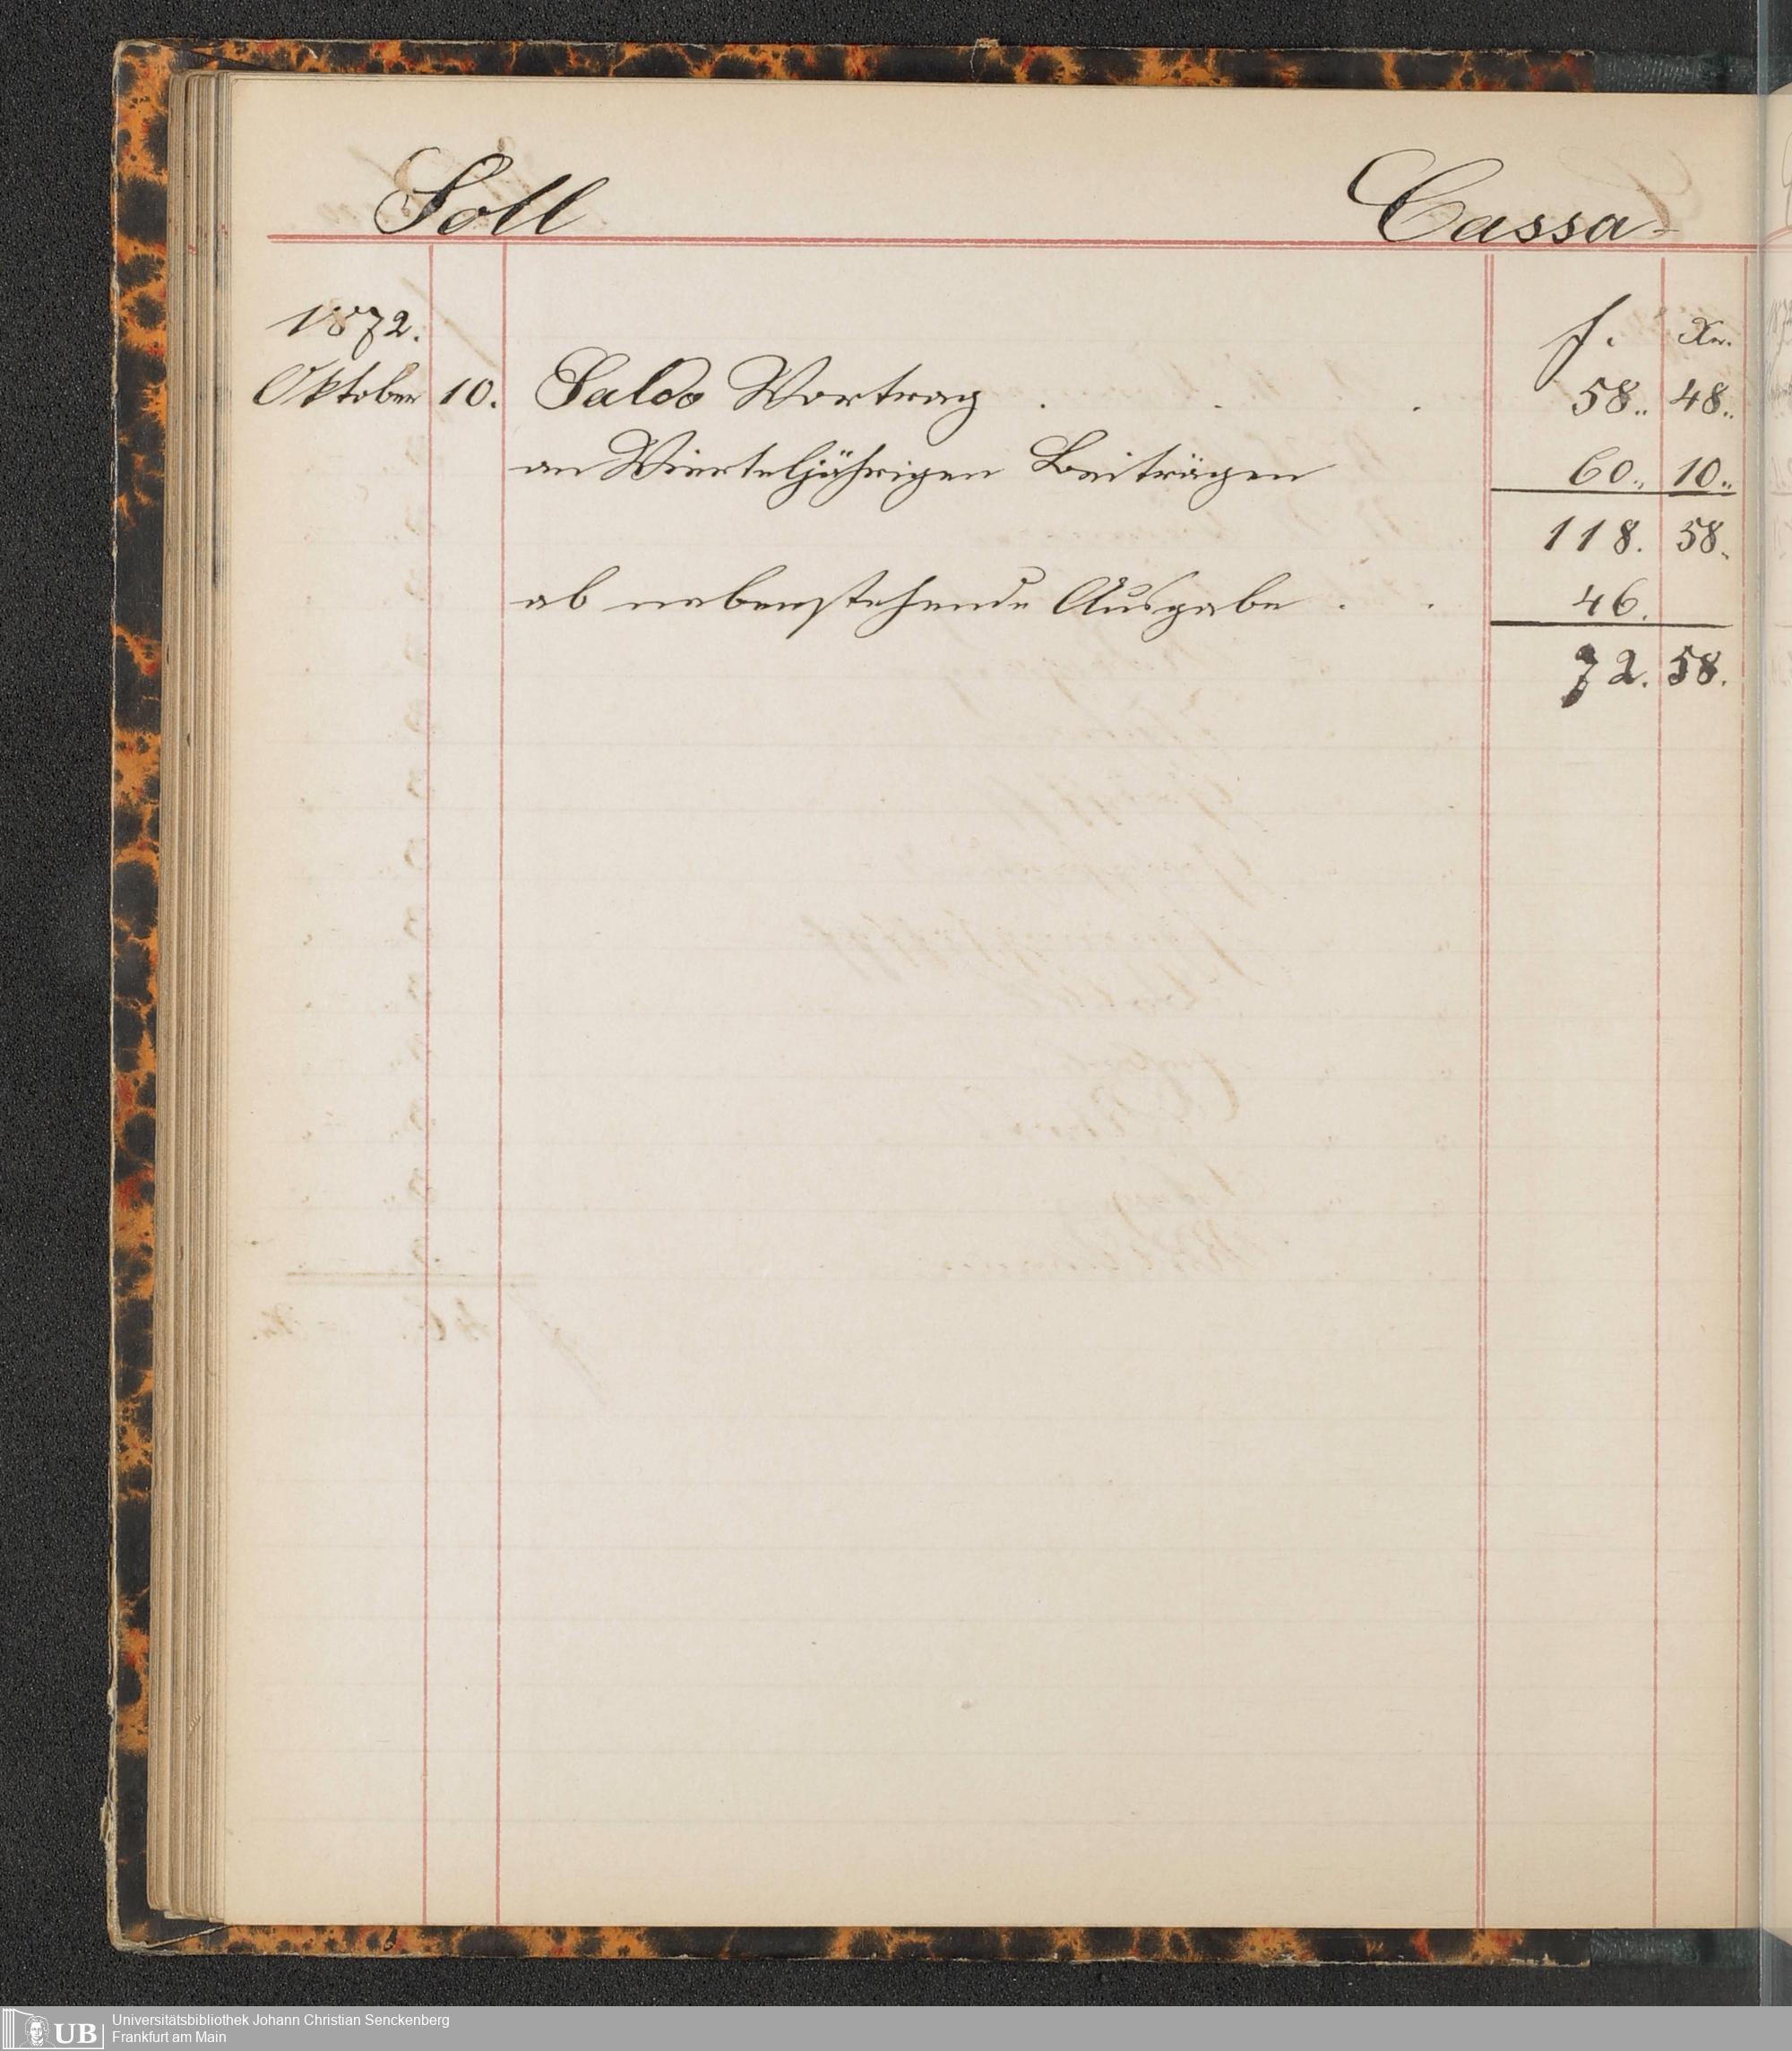 Soll Cassa-
1872. f. Xr.
Oktober 10. Saldo Vortrag . . . 58.. 48..
an Vierteljährigen Beiträgen 60.. 10..
118. 58.
ab nebenstehende Ausgabe . . 46.
72. 58.
UB Universitätsbibliothek Johann Christian Senckenberg
Frankfurt am Main